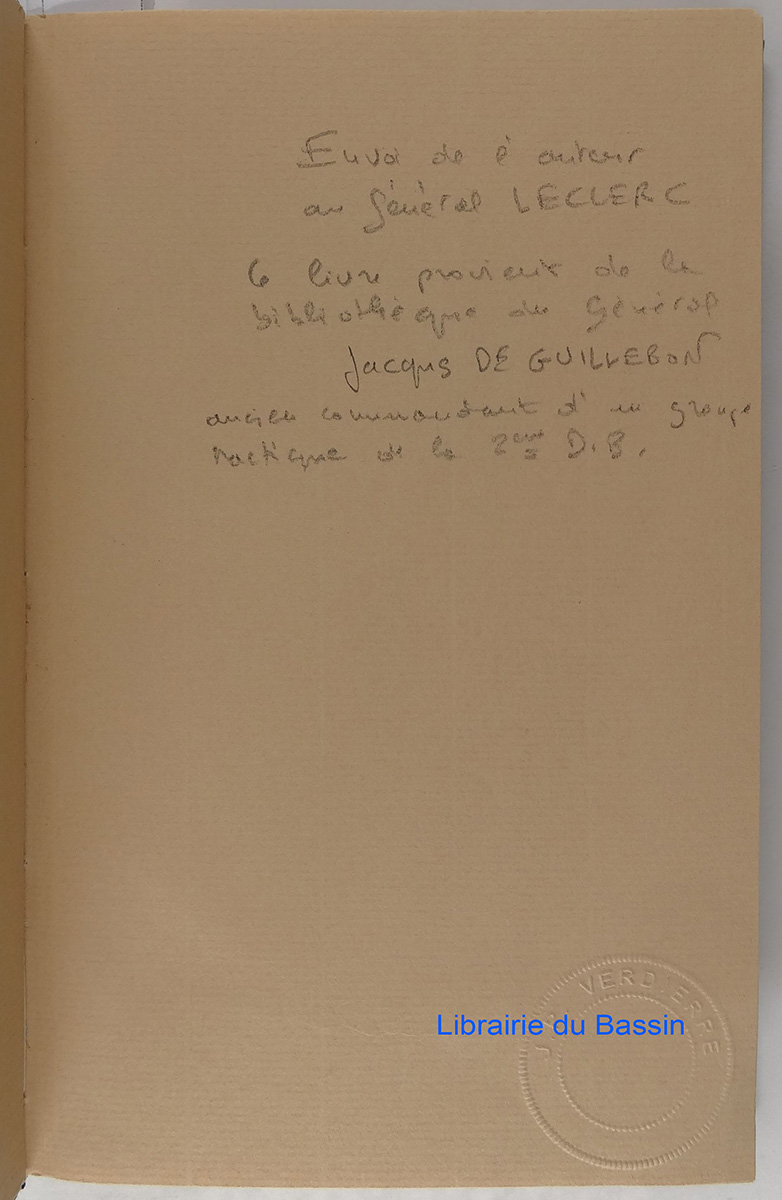 Envoi de l'auteur
au Général LECLERC
Ce livre provient de la
bibliothèque du Général
Jacques DE GUILLEBON
ancien commandant d'un groupe
tactique de la 2ème D.B.
VERDIERRE
Librairie du Bassin